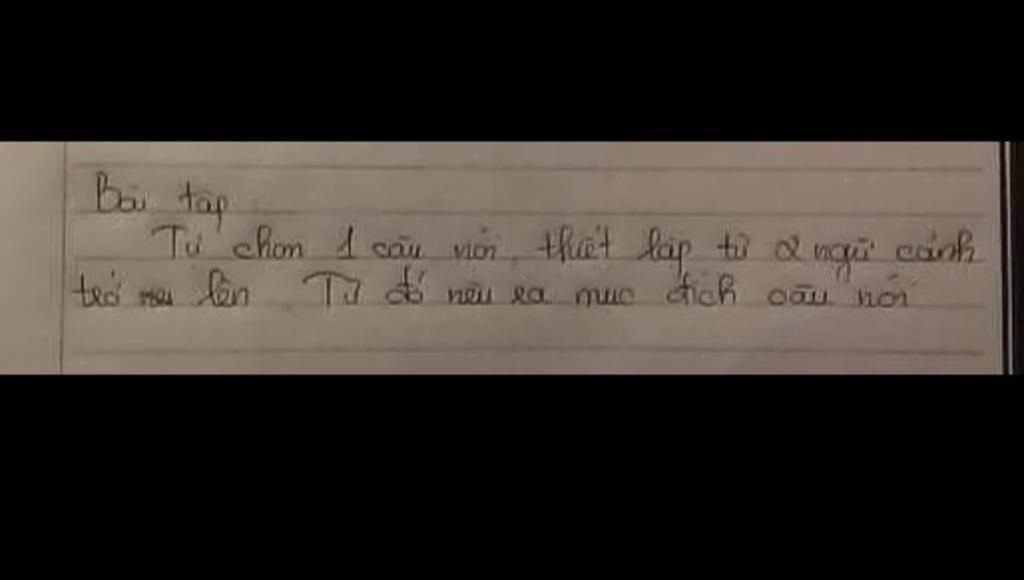 Bài tập
Tự chọn 1 câu nói, thiết lập từ 2 ngữ cảnh
trở lên Từ đó nêu ra mục đích câu nói